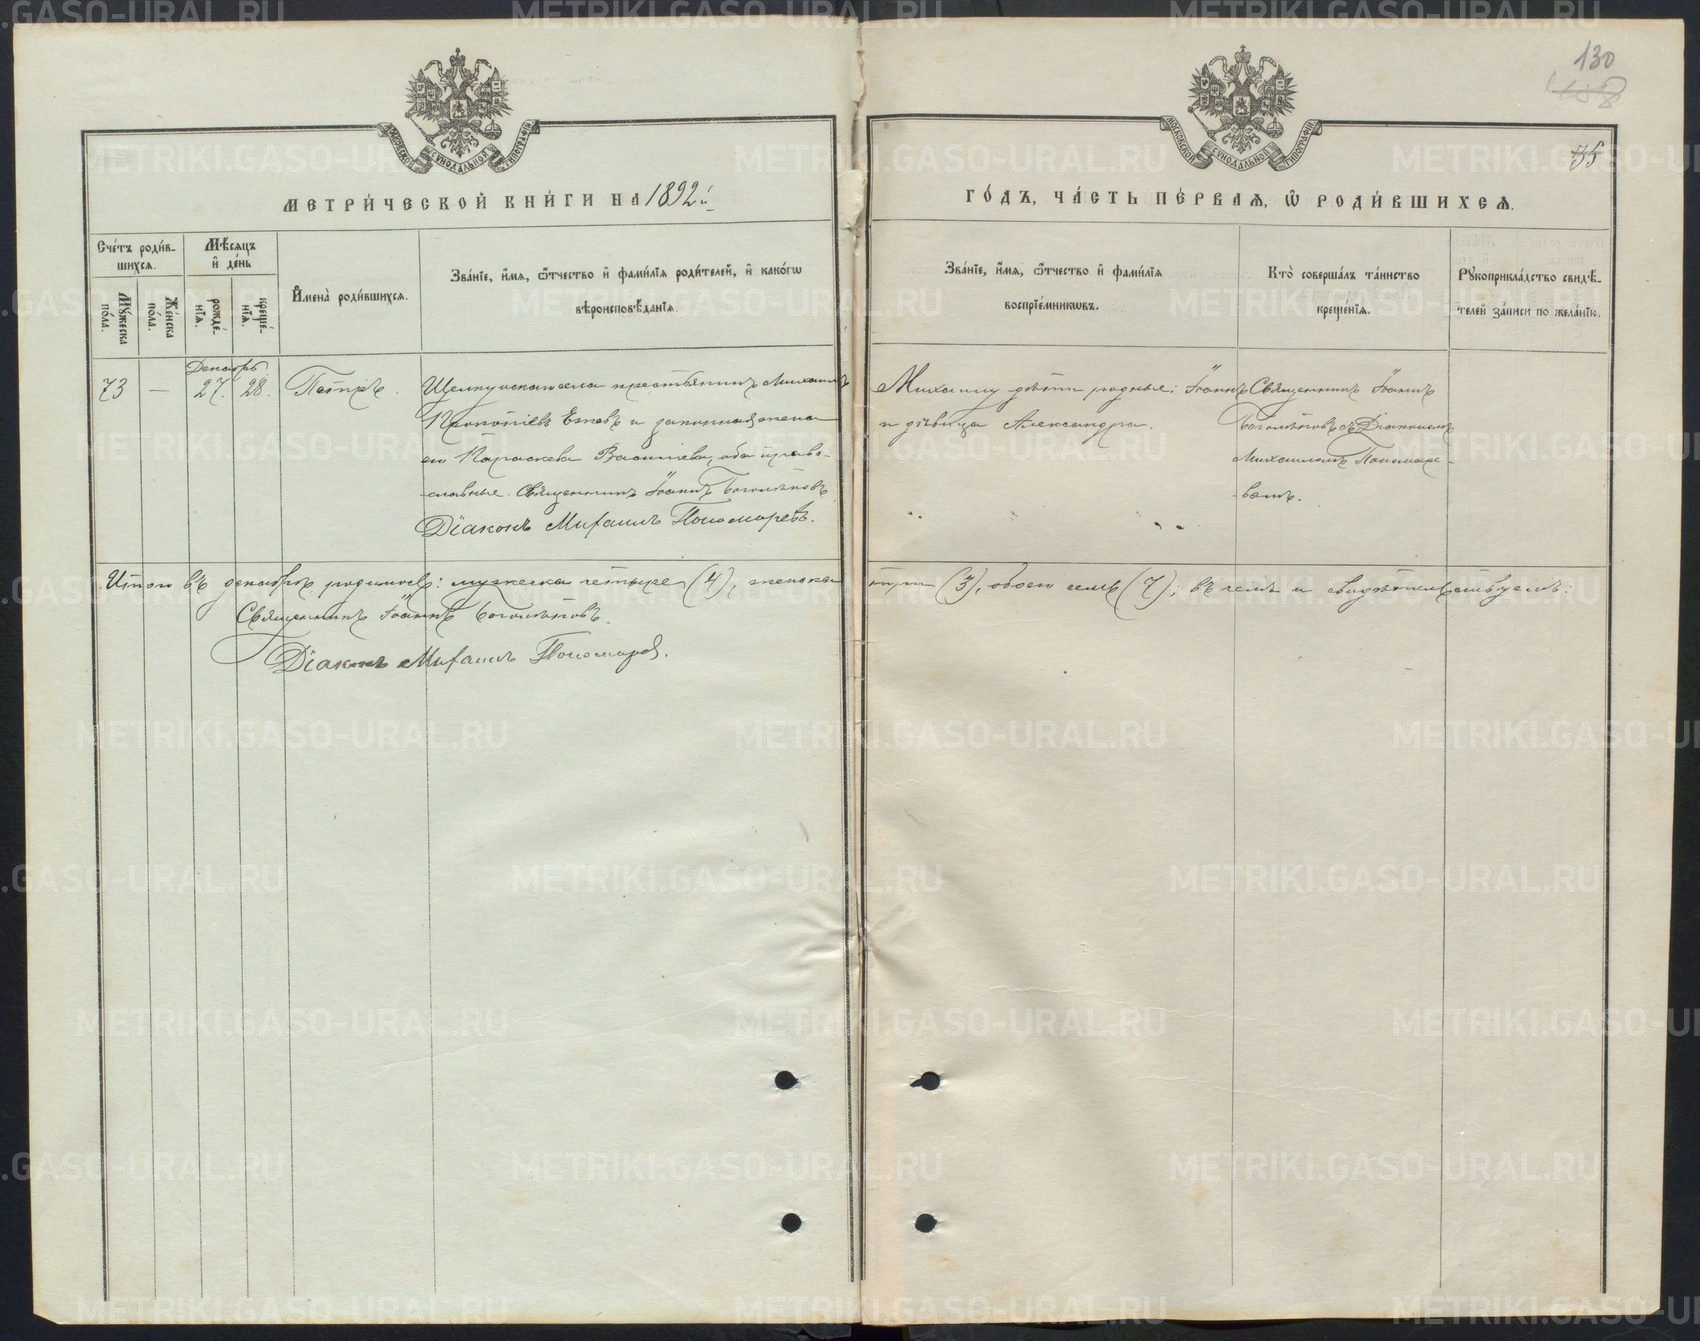 130
75
МОСКОВСКОЙ СУНОДАЛЬНОЙ ТИПОГРАФІИ
МОСКОВСКОЙ СУНОДАЛЬНОЙ ТИПОГРАФІИ
МЕТРИ́ЧЕСКОЙ КНИ́ГИ НА 1892 й
ГО́ДЪ, ЧА́СТЬ ПЕ́РВАЯ, Ѽ РОДИ́ВШИХСЯ.
Сче́тъ роди́вшихся.
Мꙋ́жеска по́ла.
Же́нска по́ла.
Мѣ́сяцъ и҆ де́нь
рожде́нїѧ.
креще́нїѧ.
И҆мена̀ роди́вшихся.
Зва́нїе, и҆́мя, ѻ҆́тчество и҆ фами́лїя роди́телей, и҆ како́гѡ
вѣроисповѣ́данїя.
Зва́нїе, и҆́мя, ѻ҆́тчество и҆ фами́лїя
воспрїе́мникѡвъ.
Кто̀ соверша́лъ та́инство
креще́нїя.
Рꙋкоприкла́дство свидѣ́-
телей за́писи по жела́нїю.
Декабрь
73 — 27. 28. Петръ.
Щелкунскаго села крестьянинъ Михаилъ
Прокопіевъ Ежовъ и законная жена
его Параскева Василіева, оба право-
славные. Священникъ Іоаннъ Боголѣповъ
Діаконъ Михаилъ Пономаревъ.
Михаилу дѣти родные: Іоаннъ
и дѣвица Александра.
Священникъ Іоаннъ
Боголѣповъ съ Діакономъ
Михаиломъ Пономаре-
вымъ.
Итого въ декабрѣ родилось: мужеска четыре (4), женска три (3), обоего семь (7); въ чемъ и свидѣтельствуемъ:
Священникъ Іоаннъ Боголѣповъ.
Діаконъ Михаилъ Пономарев.
METRIKI.GASO-URAL.RU